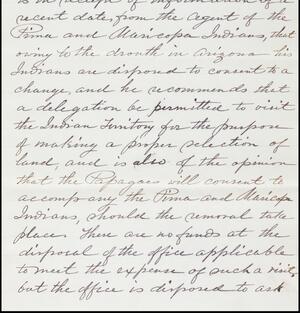 is in receipt of information of a
recent date, from the agent of the
Pima and Maricopa Indians, that
owing to the drouth in Arizona his
Indians are disposed to consent to a
change, and he recommends that
a delegation be permitted to visit
the Indian Territory for the purpose
of making a proper selection of
land, and is also of the opinion
that the Papagoes will consent to
accompany the Pima and Maricopa
Indians, should the removal take
place. There are no funds at the
disposal of the office applicable
to meet the expense of such a visit,
but the office is disposed to ask